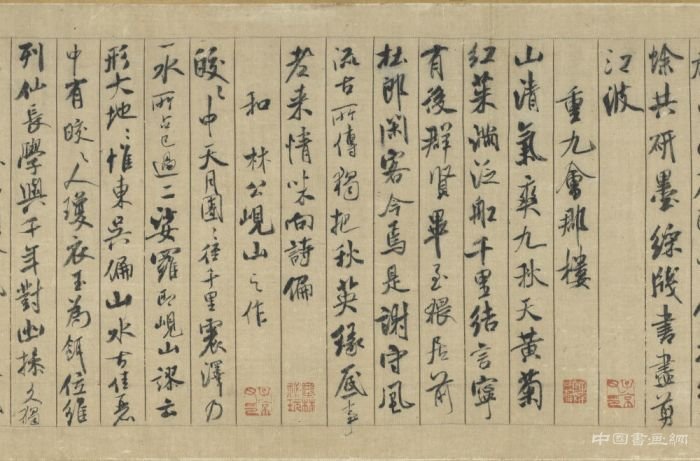 蜍共研墨綵牋書盡剪
江波
重九會郡樓
山清氣爽九秋天黃菊
紅茱滿泛船千里結言寧
有後群賢畢至猥居前
杜郎閑客今焉是謝守風
流古所傳獨把秋英緣底事
老來情味向詩偏
和林公峴山之作
皎〻中天月團〻徑千里震澤乃
一水所占已過二娑羅即峴山謬云
形大地〻惟東吳偏山水古佳麗
中有皎〻人瓊衣玉為餌位維
列仙長學與千年對幽操久獨
中国書画網